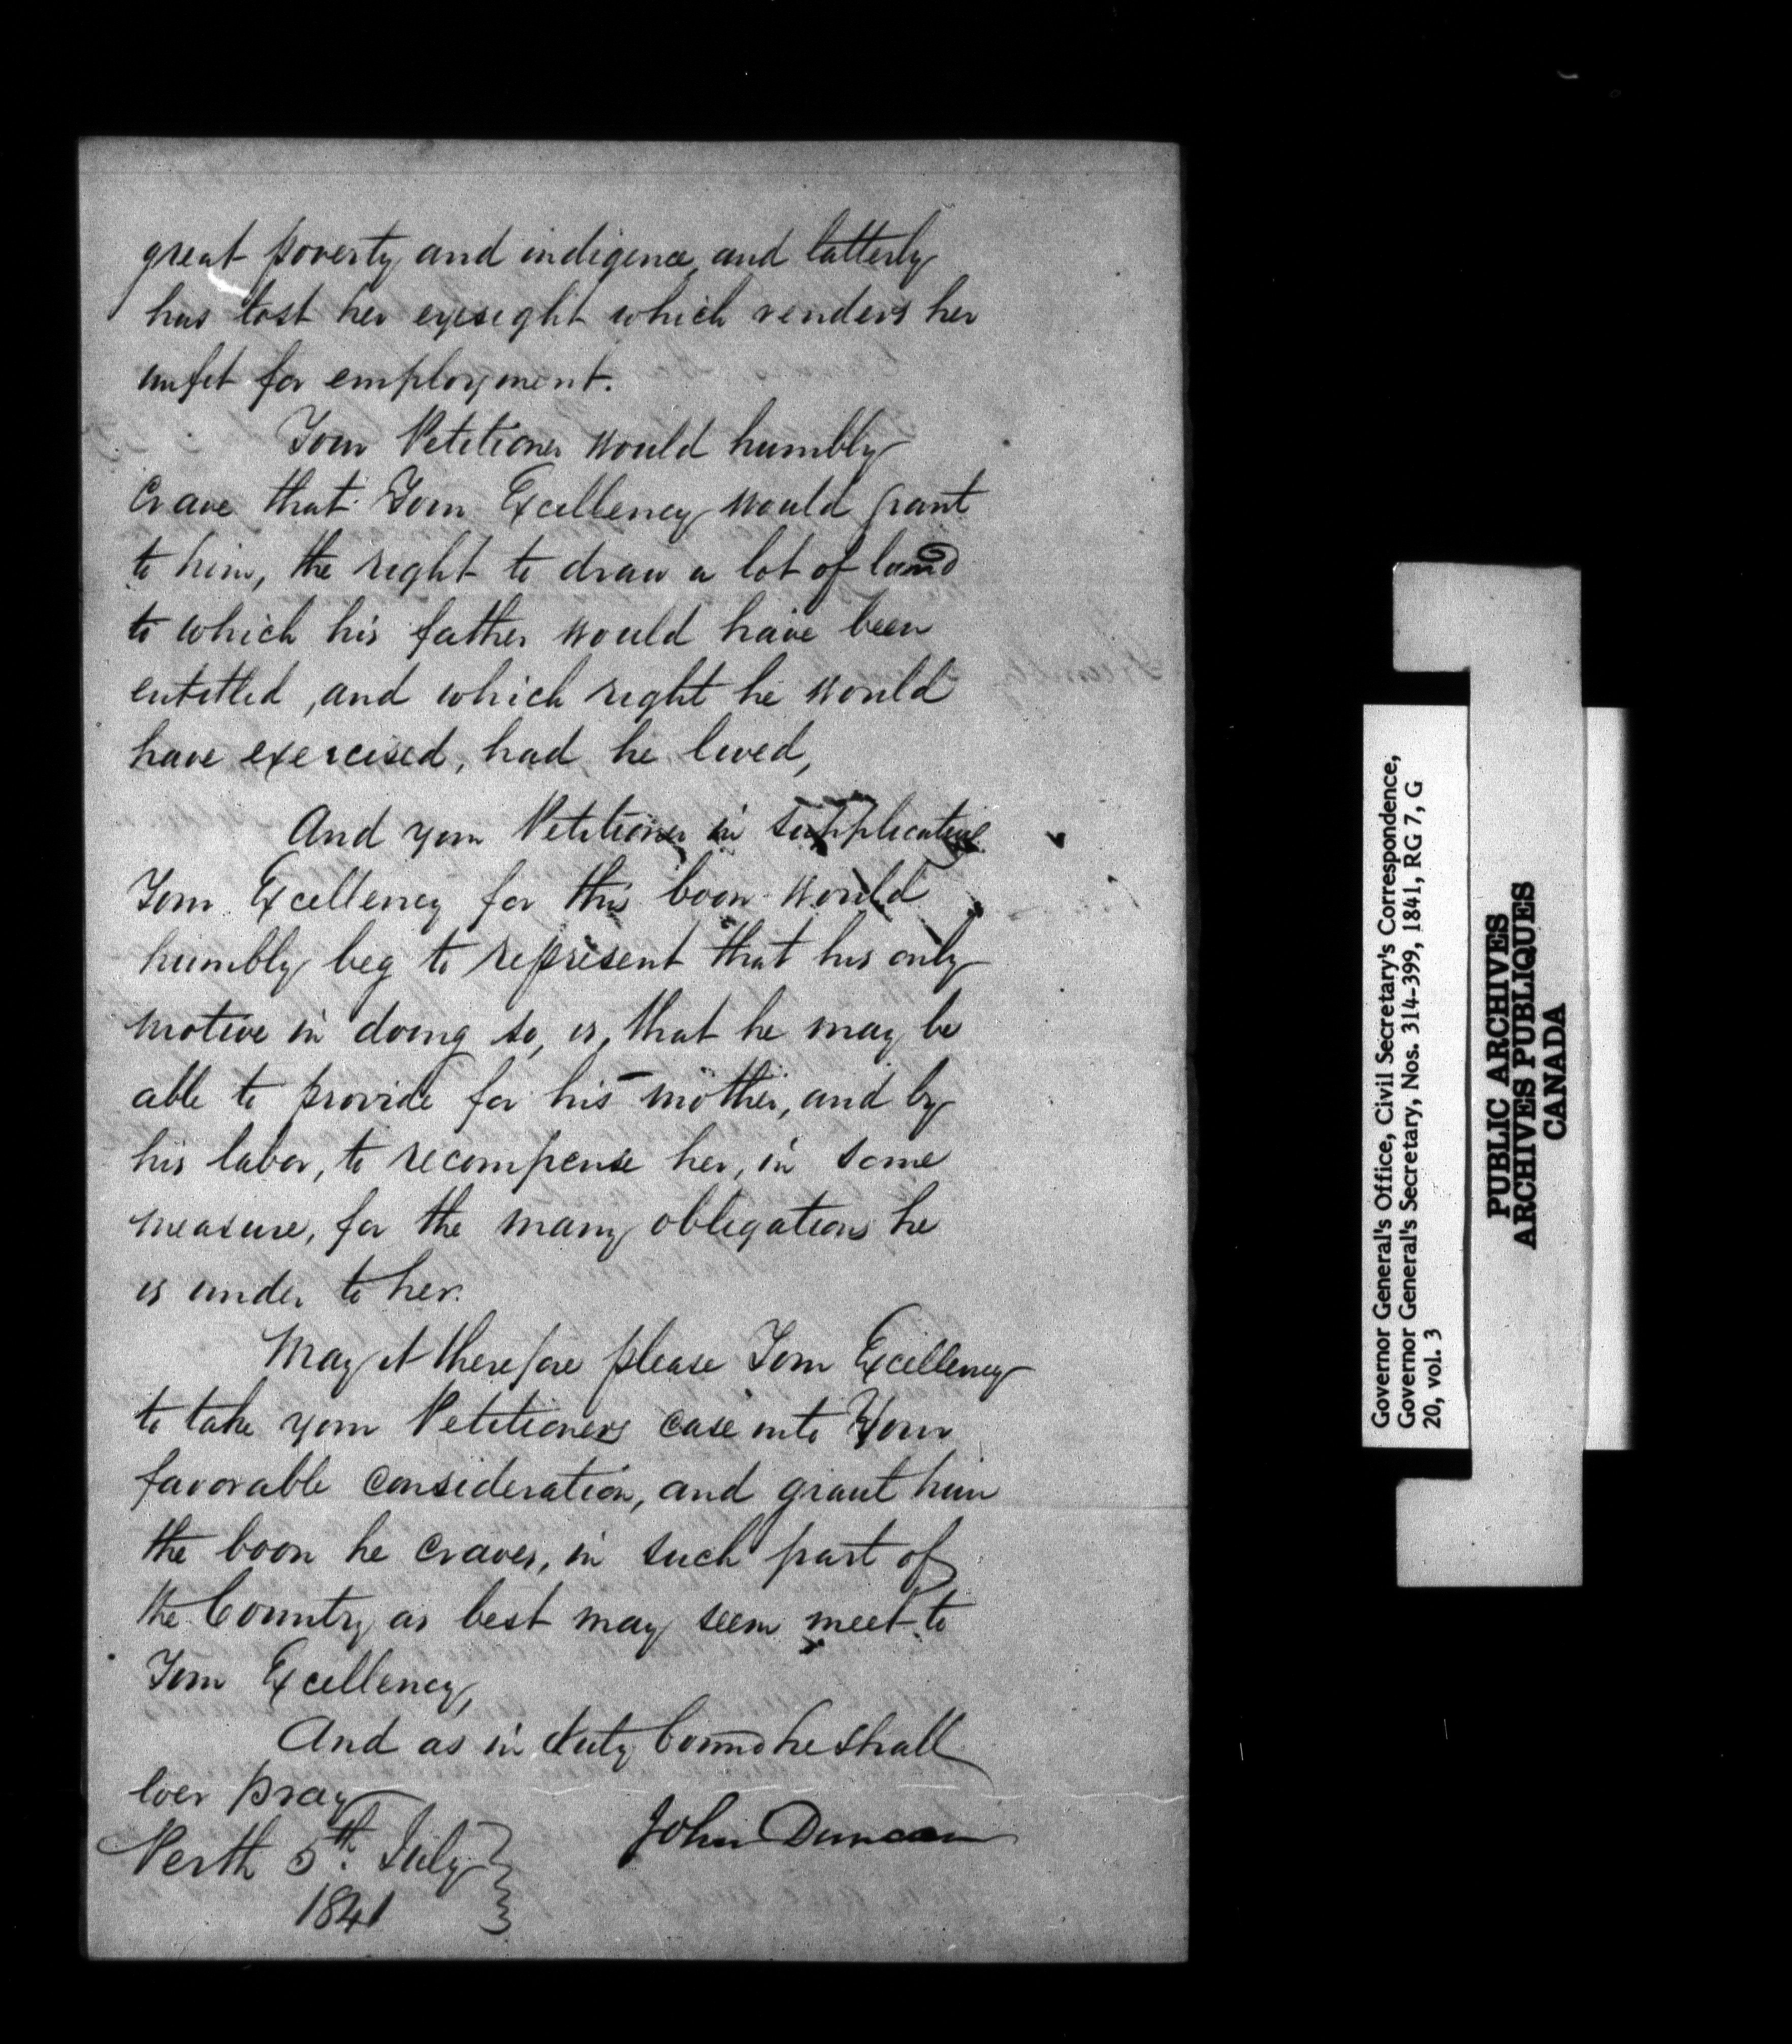 great poverty and indigence, and latterly
has lost her eyesight which renders her
unfit for employment.
Your Petitioner would humbly
crave that Your Excellency would grant
to him, the right to draw a lot of land
to which his father would have been
entitled, and which right he would
have exercised, had he lived,
And your Petitioner in supplicating
Your Excellency for this boon would
humbly beg to represent that his only
motive in doing so, is, that he may be
able to provide for his mother, and by
his labor, to recompense her, in some
measure, for the many obligations he
is under to her.
May it therefore please Your Excellency
to take your Petitioners case into Your
favorable consideration, and grant him
the boon he craves, in such part of
the Country as best may seem meet to
Your Excellency,
And as in duty bound he shall
ever pray
John Duncan
Perth 5th. July
1841
Governor General's Office, Civil Secretary's Correspondence,
Governor General's Secretary, Nos. 314-399, 1841, RG 7, G
20, vol. 3
PUBLIC ARCHIVES
ARCHIVES PUBLIQUES
CANADA